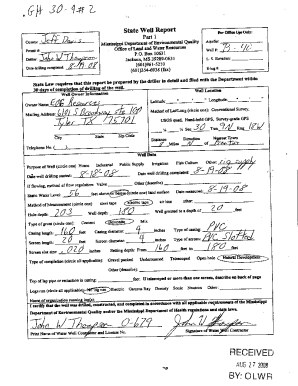 GH 30-9 #2
State Well Report
Part 1
Mississippi Department of Environmental Quality
Office of Land and Water Resources
P.O. Box 10631
Jackson, MS 39289-0631
(601)961-5210
(601)354-6938 (fax)
For Office Use Only:
County: Jeff Davis
Permit #:
Driller: John W Thompson
Date drilling completed: 8-19-08
Aquifer:
Well #:
L. S. Elevation:
State Law requires that this report be prepared by the driller in detail and filed with the Department within
30 days of completion of drilling of the well.
Well Owner Information
Well Location
Owner Name: EOG Resources
Mailing Address: 6101 S Broadway
Tyler TX 75701
City State Zip Code
Telephone No.
Latitude: Longitude:
Method of Lat/Long (circle one): Conventional Survey,
USGS quad, Hand-held GPS, Survey-grade GPS
Sec 30 Twn 9N Rng 18W
Distance Direction Nearest Town
8 Miles N of
Well Data
Purpose of Well (circle one) Home Industrial Public Supply Irrigation Fish Culture Other: rig supply
Date well drilling started: 8-18-08 Date well drilling completed: 8-19-08
If flowing, method of flow regulation: Valve Other (describe)
Static Water Level: 56 feet above/below (circle one) land surface Date measured: 8-19-08
Method of Measurement (circle one) steel tape electric tape air line other:
Hole depth: 203 Well depth: 180 Well grouted to a depth of 20 feet
Type of grout (circle one) Cement Bentonite Mix
Casing length: 160 feet Casing diameter: 4 inches Type of casing: PVC
Screen length: 20 feet Screen diameter: 4 inches Type of screen: PVC Slotted
Screen slot size: .020 inches Setting depth: From 160 feet to 180 feet
Type of completion (circle all applicable) Gravel packed Underreamed Telescoped Open hole Natural Development
Other (describe):
Top of lap pipe or reduction in casing: feet. If telescoped or more than one screen, describe on back of page
Logs run (circle all applicable) No log run Electric Gamma Ray Density Sonic Neutron Other:
Name of organization running log(s):
I certify that the well was drilled, constructed, and completed in accordance with all applicable requirements of the Mississippi
Department of Environmental Quality and/or the Mississippi Department of Health regulations and state laws.
John W Thompson 0-679
Print Name of Water Well Contractor and License No.
Signature of Water Well Contractor
RECEIVED
AUG 27 2008
BY: OLWR